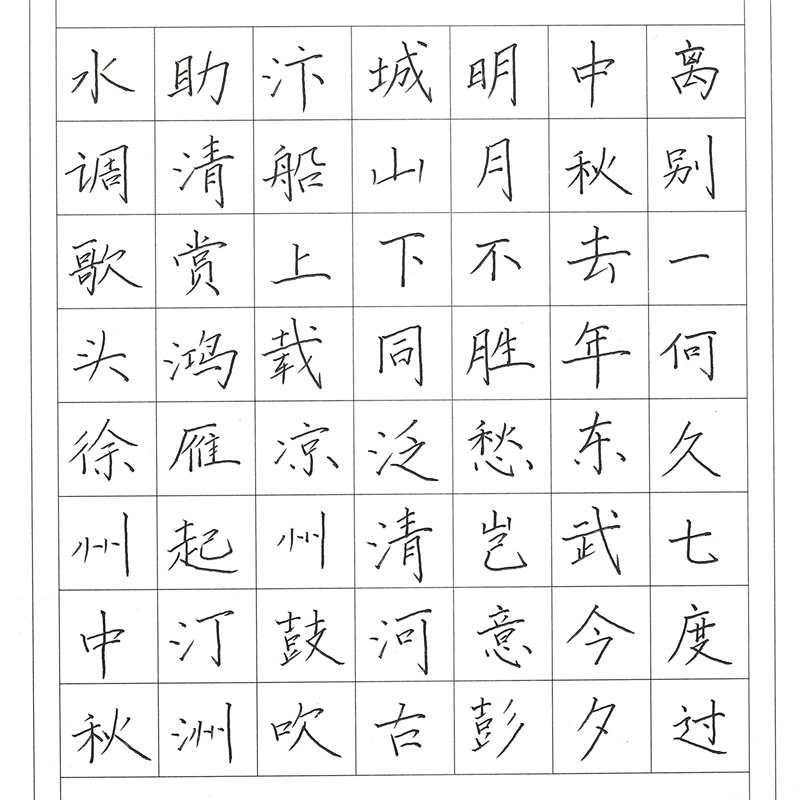 离别一何久七度过
中秋去年东武今夕
明月不胜愁岂意彭
城山下同泛清河古
汴船上载凉州鼓吹
助清赏鸿雁起汀洲
水调歌头徐州中秋